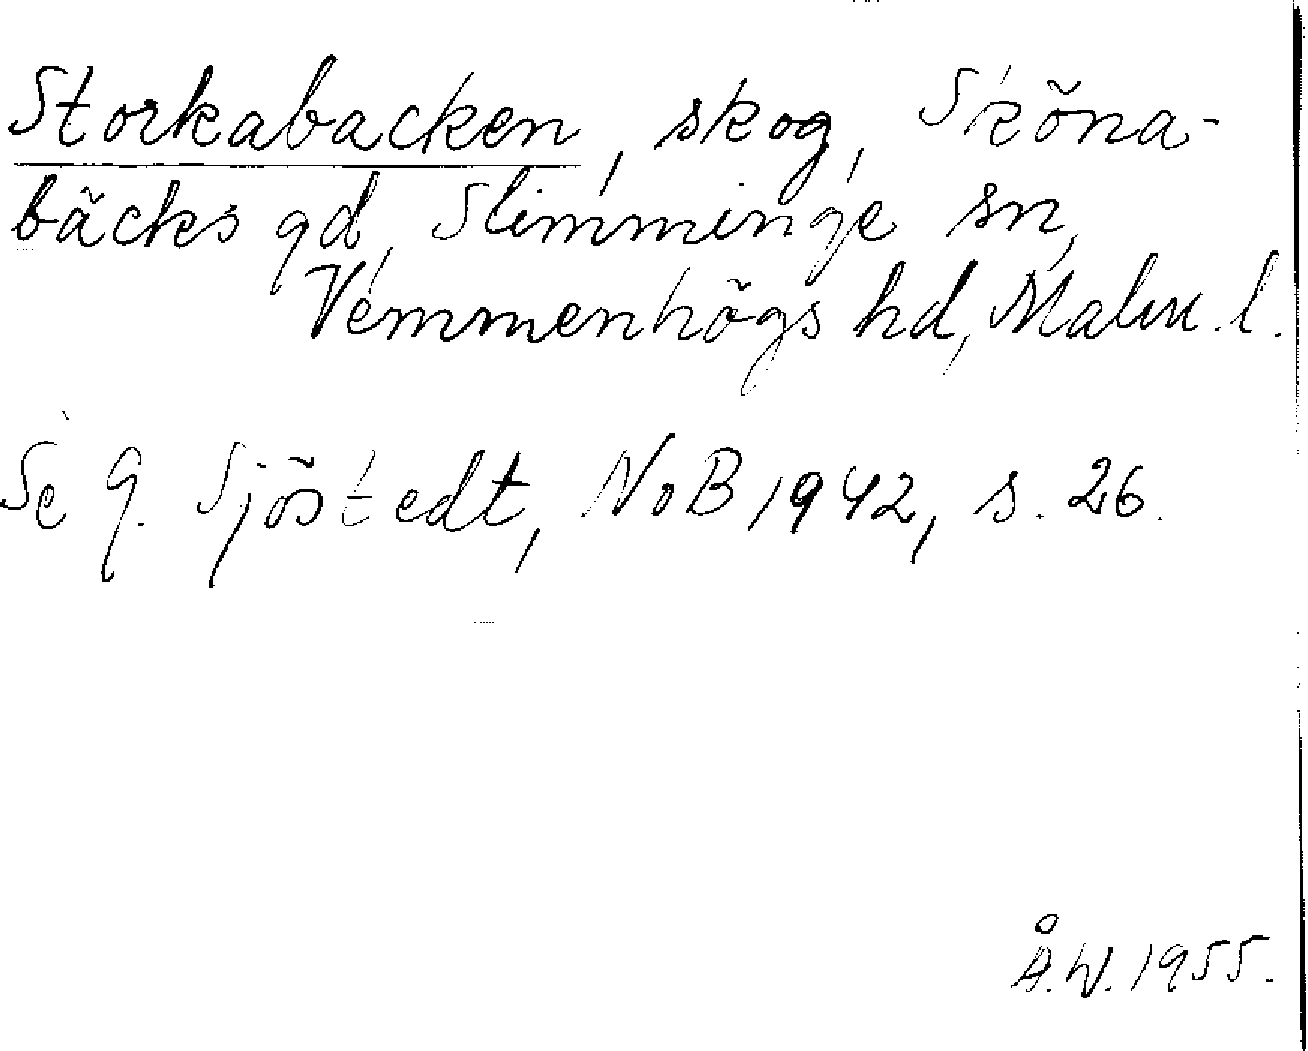 Storkabacken, skog, Sköna-
bäcks gd, Slimminge sn,
Vemmenhögs hd, Malm. l.
Se G. Sjöstedt, NoB 1942, s. 26.
Å.W. 1955.